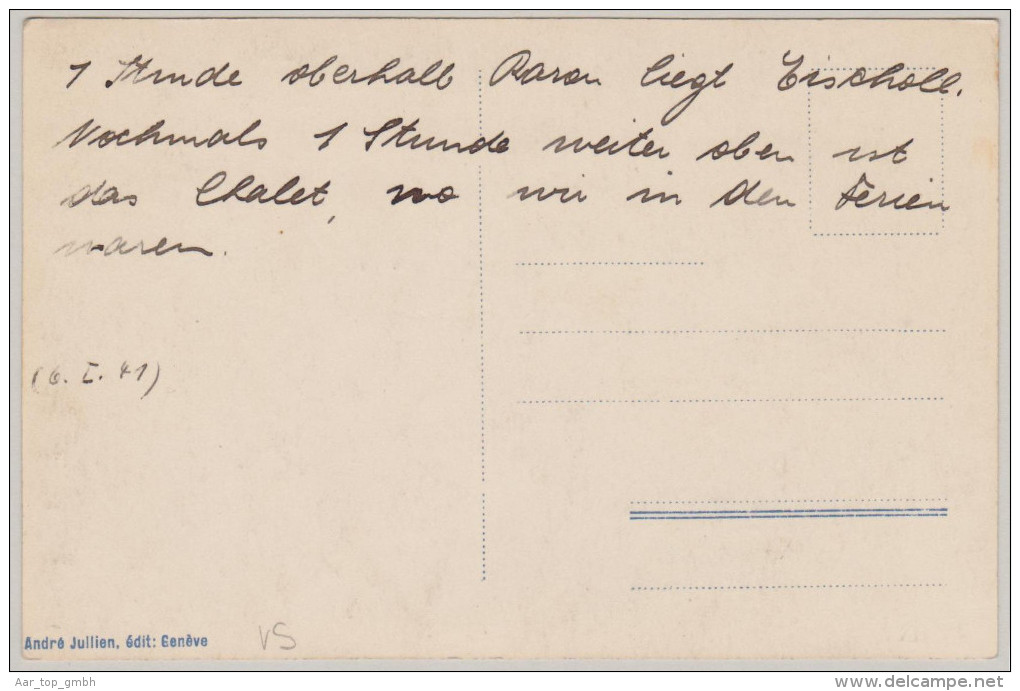 1 Stunde oberhalb Raron liegt Eischoll.
Nochmals 1 Stunde weiter oben ist
das Chalet, wo wir in den Ferien
waren.
(6. I. 41)
André Jullien, édit: Genève
VS
Aar_top_gmbh
delcampe.net